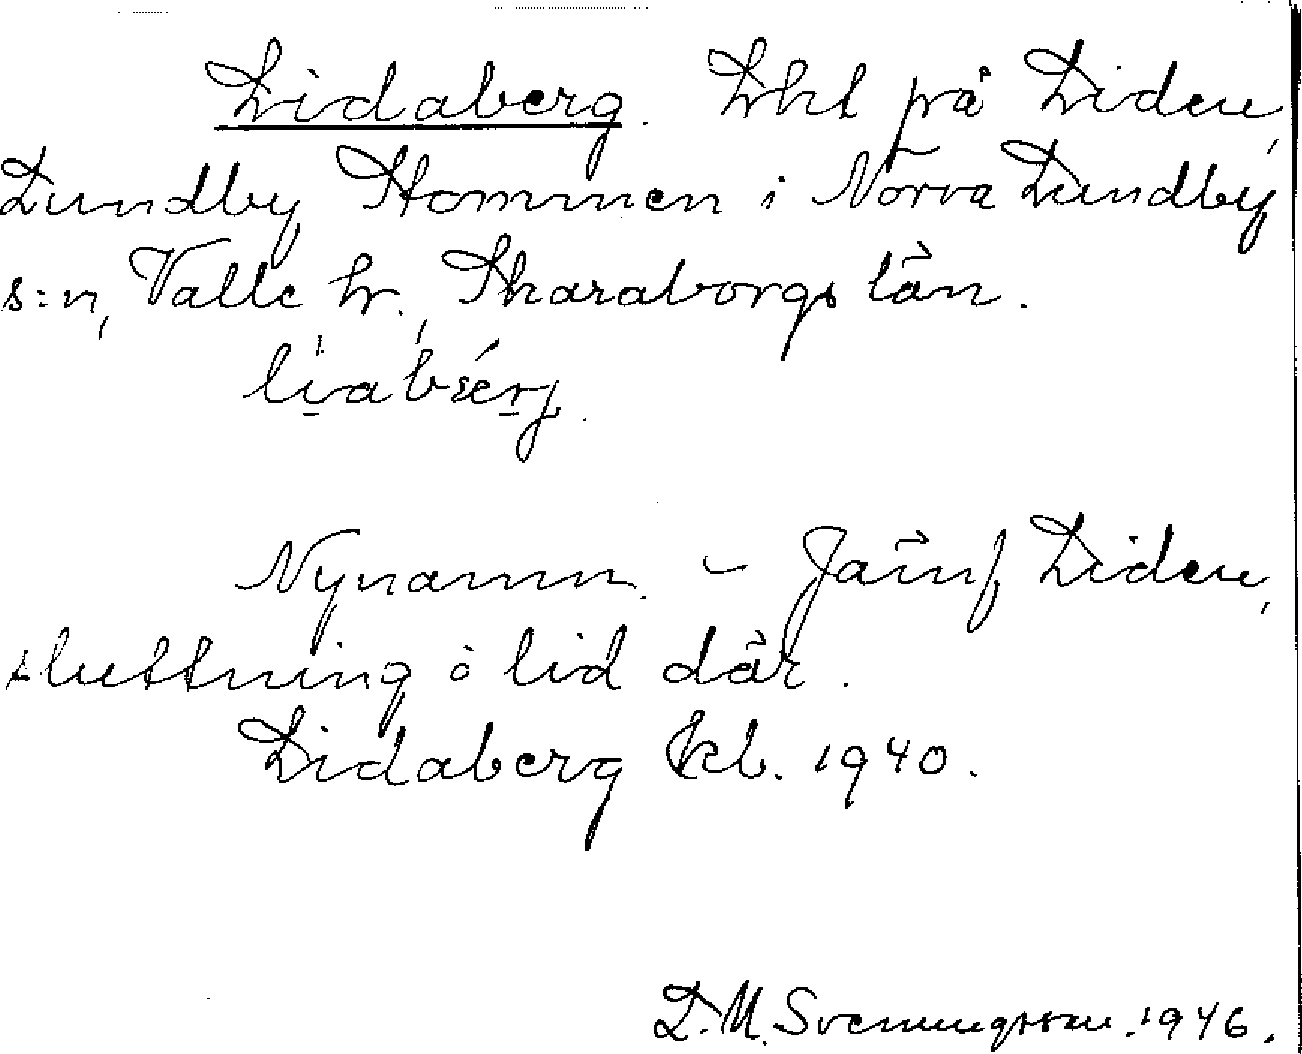 Lidaberg. Lht på Liden,
Lundby Stommen i Norra Lundby
s:n, Valle hr., Skaraborgs län.
Nynamn. – Jämf Liden,
sluttning o lid där.
Lidaberg kb. 1940.
L. M. Svenungsson. 1946.